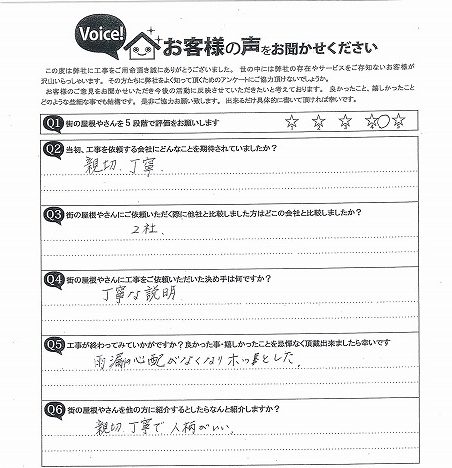 Voice!
お客様の声をお聞かせください
この度は弊社に工事をご用命頂き誠にありがとうございました。 世の中には弊社の存在やサービスをご存知ないお客様が
沢山いらっしゃいます。 その方たちに弊社をよく知って頂くためのアンケートにご協力頂けないでしょうか。
お客様のご意見をお聞かせいただき今後の活動に反映させていただきたいと考えております。 良かったこと、嬉しかったこと
どのような些細な事でも結構です。 是非ご協力お願い致します。 出来るだけ具体的に書いて頂ければ幸いです。
Q1 街の屋根やさんを5段階で評価をお願いします ☆ ☆ ☆ ☆○☆
Q2 当初、工事を依頼する会社にどんなことを期待されていましたか?
親切、丁寧、
Q3 街の屋根やさんにご依頼いただく際に他社と比較しました方はどこの会社と比較しましたか?
2社、
Q4 街の屋根やさんに工事をご依頼いただいた決め手は何ですか?
丁寧な説明
Q5 工事が終わってみていかがですか?良かった事・嬉しかったことを忌憚なく頂戴出来ましたら幸いです
雨漏の心配がなくなりホッとした。
Q6 街の屋根やさんを他の方に紹介するとしたらなんと紹介しますか?
親切、丁寧で人柄がいい。